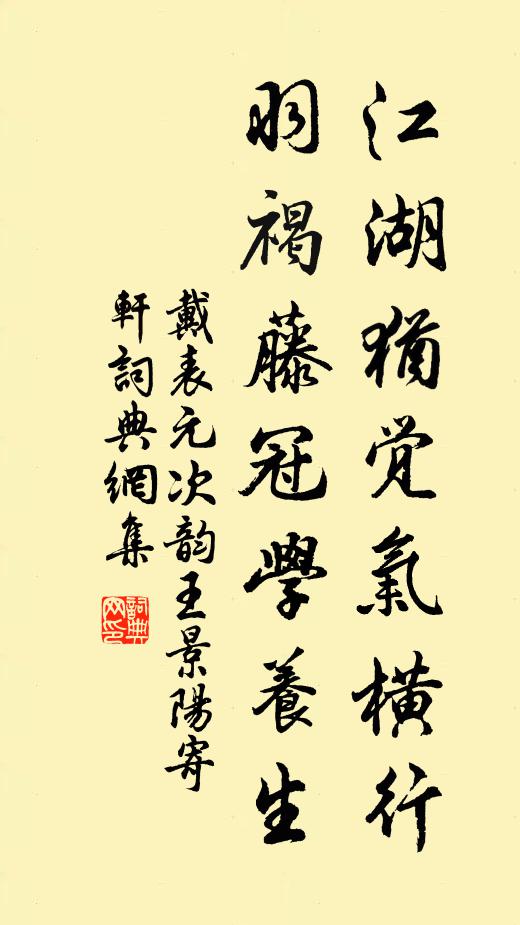 江湖猶覚氣橫行
羽褐藤冠學養生
戴表元次韵王景陽寄
軒詞典網集
詞典
网印